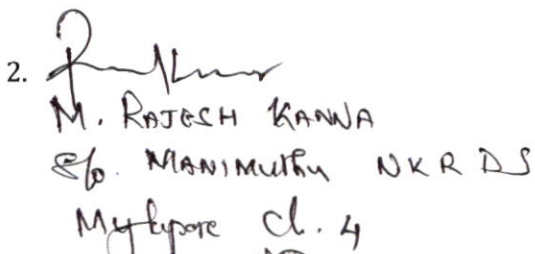 2.
M. RAJESH KANNA
S/o. MANIMUTHU NKR DS
Mylapore Ch. 4